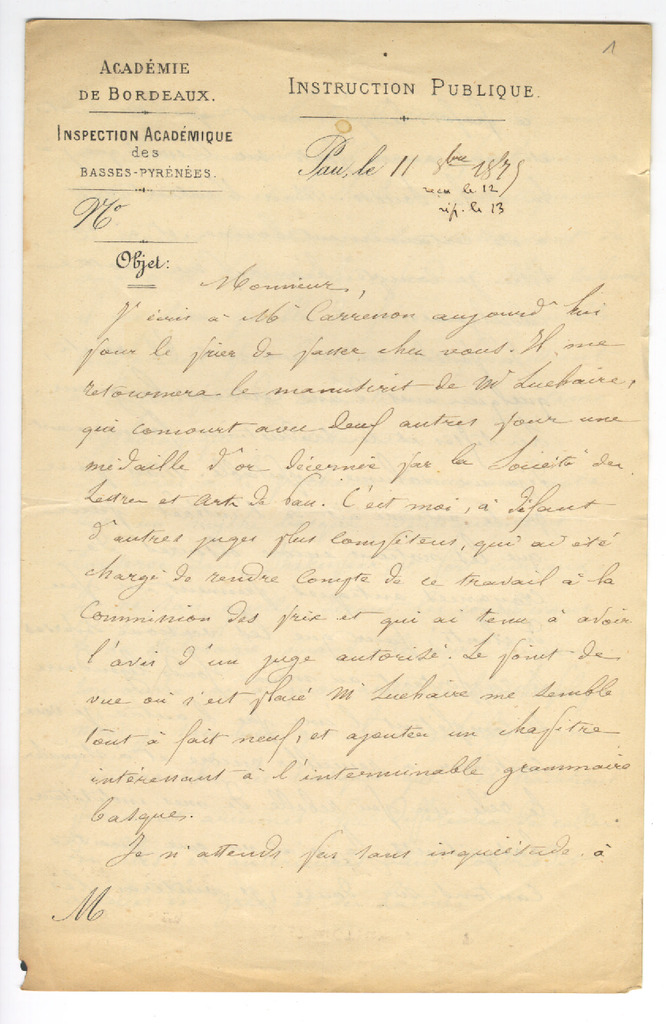 1
ACADÉMIE
DE BORDEAUX.
INSTRUCTION PUBLIQUE.
INSPECTION ACADÉMIQUE
des
BASSES-PYRÉNÉES.
Pau, le 11 8bre 1875
reçu le 12
rép. le 13
No
Objet:
Monsieur,
J'écris à Mr Carrenon aujourd'hui
pour le prier de passer chez vous. Il me
retournera le manuscrit de Mr Luchaire,
qui concourt avec deux autres pour une
médaille d'or décernée par la Société des
Lettres et Arts de Pau. C'est moi, à défaut
d'autres juges plus compétens, qui ai été
chargé de rendre compte de ce travail à la
Commission des prix et qui ai tenu à avoir
l'avis d'un juge autorisé. Le point de
vue où s'est placé Mr Luchaire me semble
tout à fait neuf, et ajouter un chapitre
intéressant à l'interminable grammaire
basque.
Je n'attends pas sans inquiétude à
M